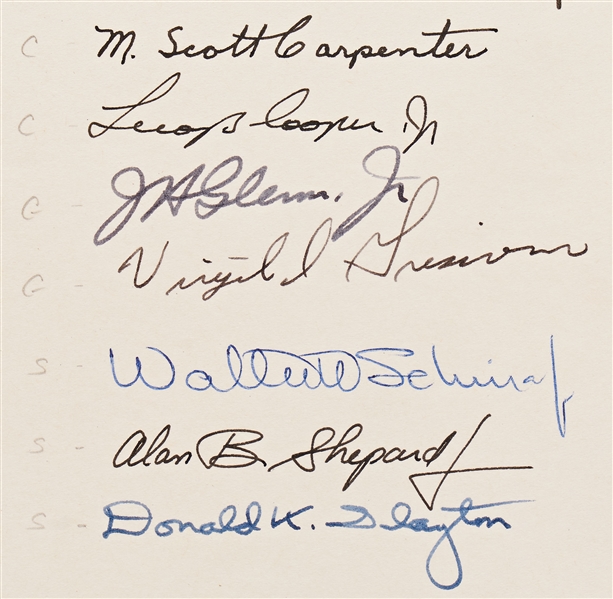 C - M. Scott Carpenter
C - Leroy G Cooper Jr
G - J H Glenn. Jr
G - Virgil I Grissom
S - Walter M Schirra Jr
S - Alan B. Shepard Jr
S - Donald K. Slayton